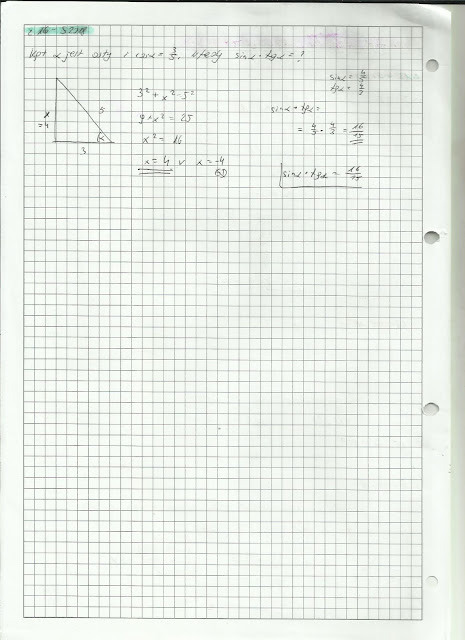 kąt α jest ostry i cosα = 3/5. Wtedy sinα · tgα = ?
sinα = 4/5
tgα = 4/3
x = 4
5
α
3
3² + x² = 5²
9 + x² = 25
x² = 16
x = 4 v x = -4
sinα · tgα =
= 4/5 · 4/3 = 16/15
sinα · tgα = 16/15